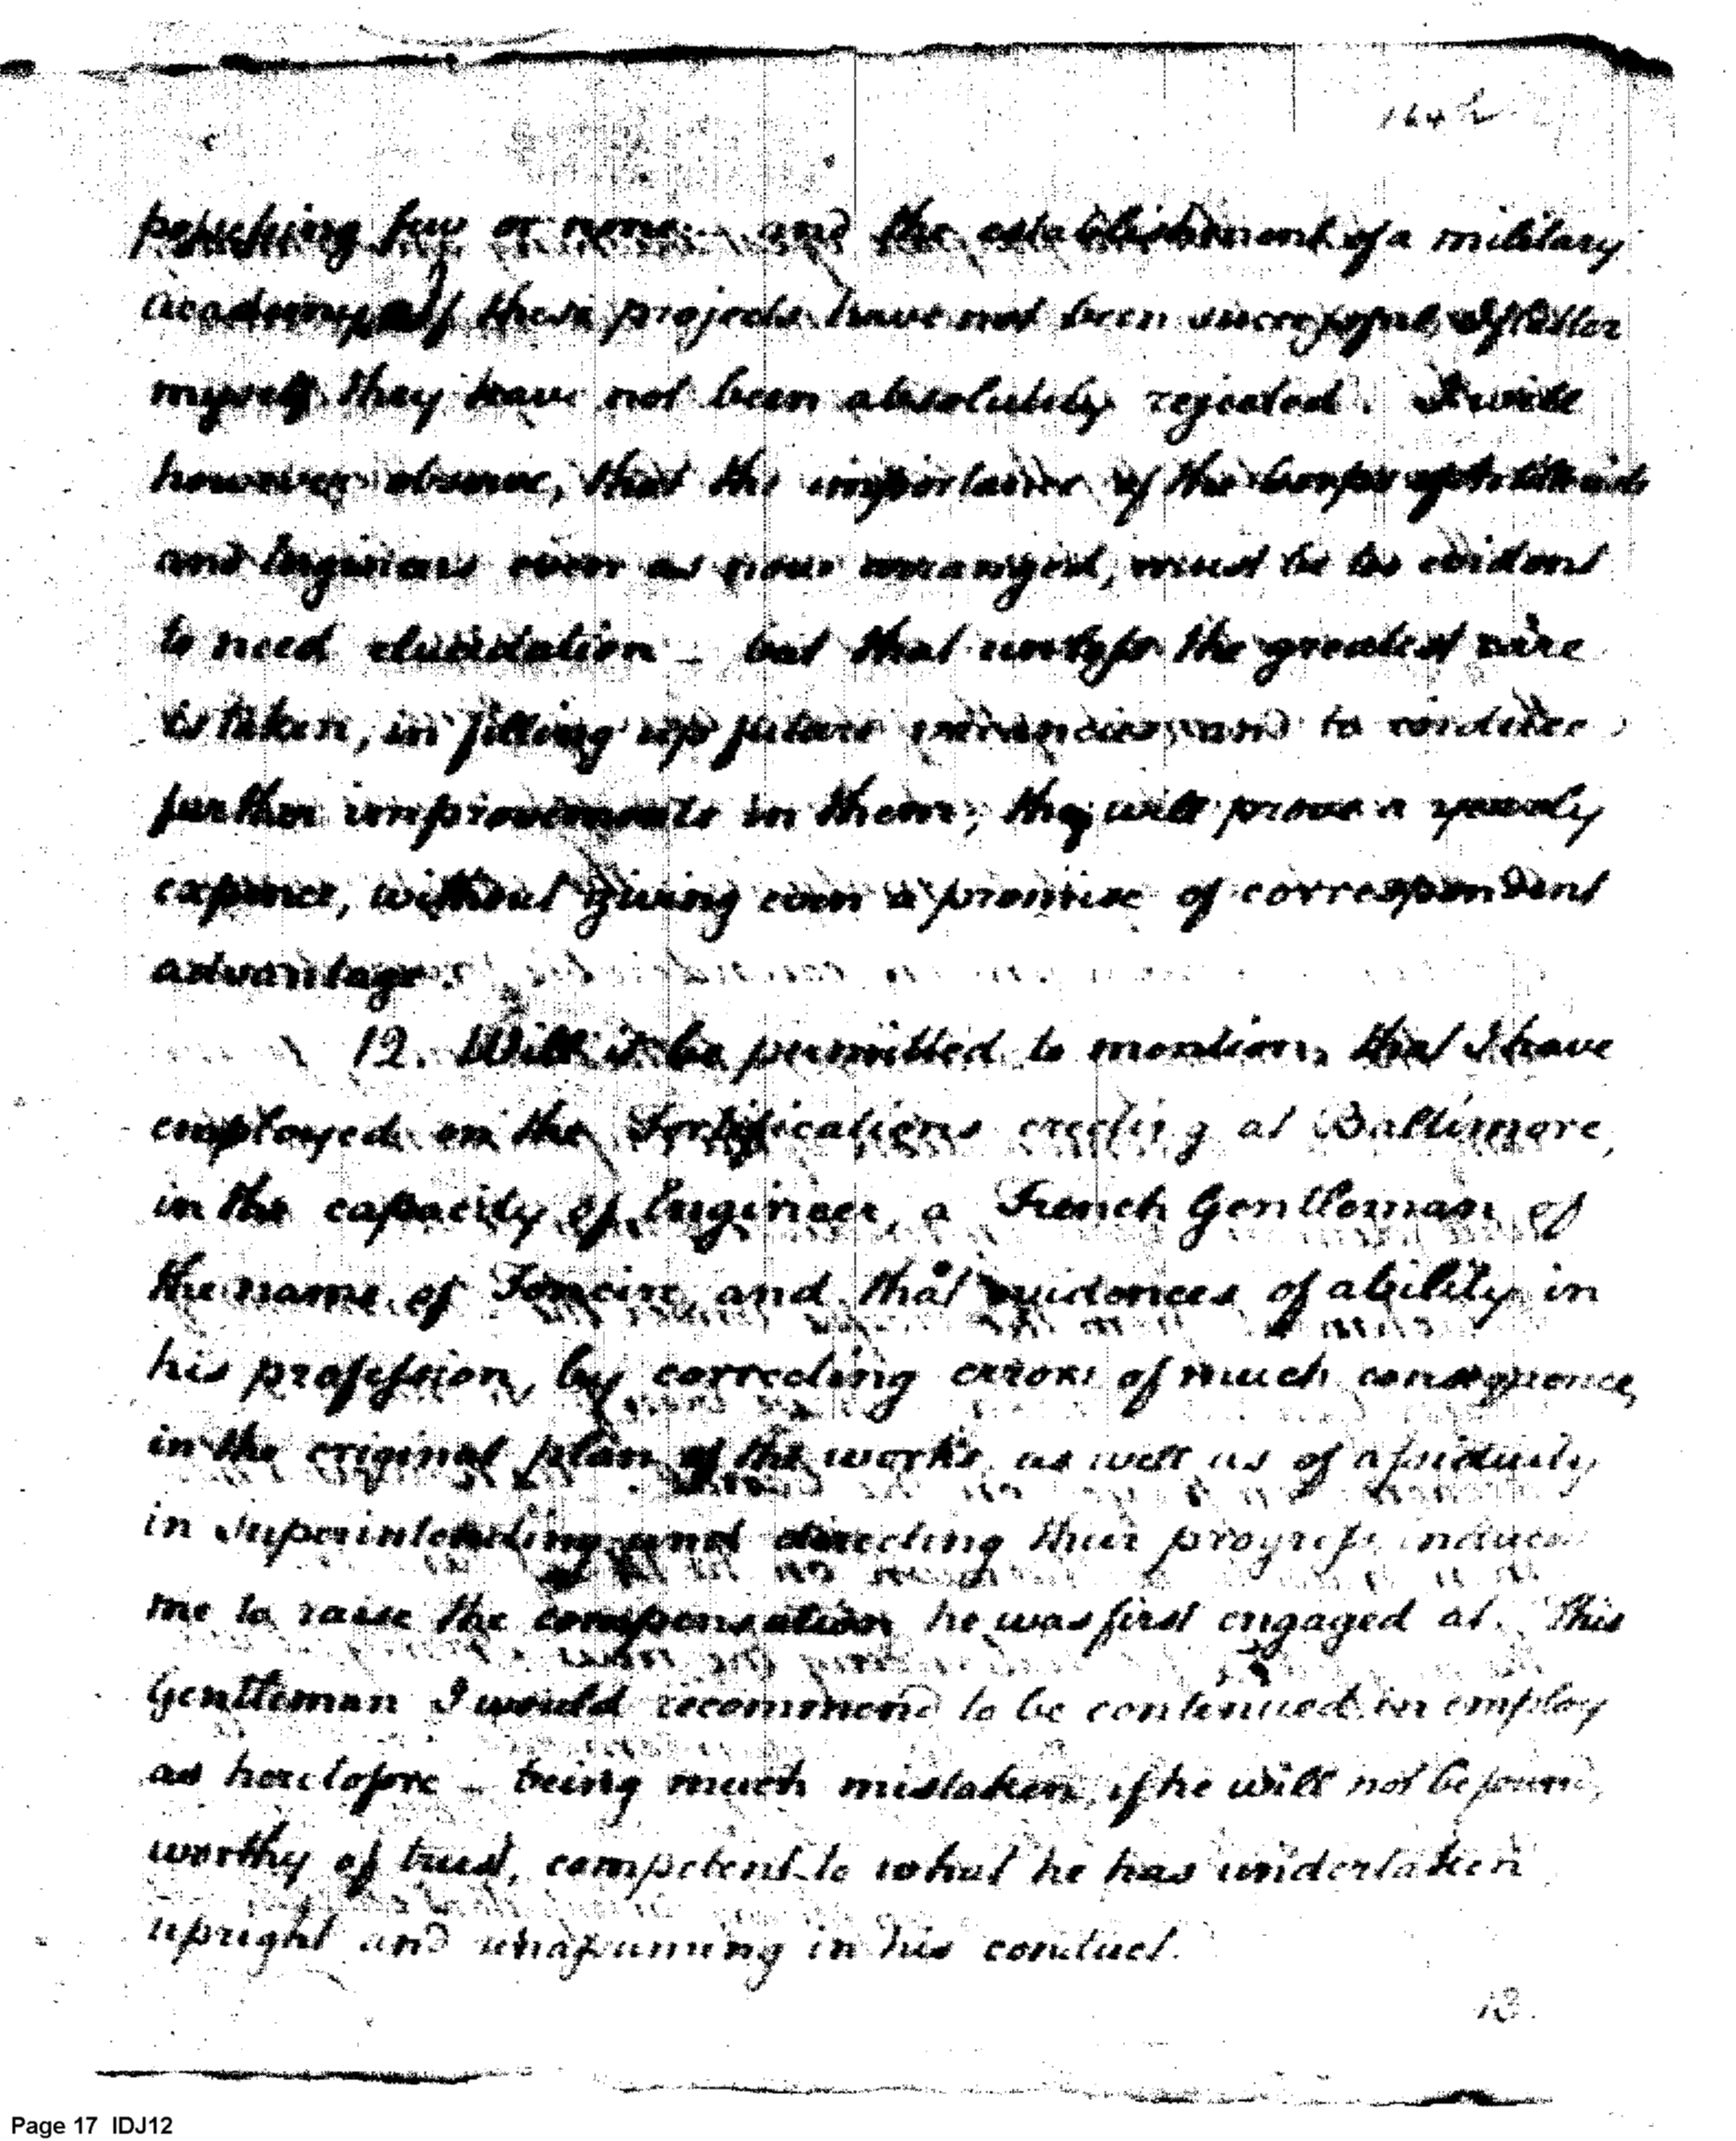 164
possessing few or none. and the establishment of a military
academy. If these projects have not been successful, I flatter
myself they have not been absolutely rejected. I will
however observe, that the importance of the Corps of Artillerists
and Engineers even as now arranged, must be too evident
to need elucidation – but that unless the greatest care
is taken, in filling up future vacancies, and to
further improvements in them; they will prove a yearly
expence, without giving even a promise of correspondent
advantages.
12. Will it be permitted to mention, that I have
employed on the Fortifications erecting at Baltimore,
in the capacity of Engineer, a French Gentleman of
the name of Foncin, and that evidences of ability in
his profession, by correcting errors of much consequence,
in the original plan of the works, as well as of assiduity
in superintending and directing their progress induced
me to raise the compensation he was first engaged at. This
Gentleman I would recommend to be continued in employ
as heretofore – being much mistaken, if he will not be found,
worthy of trust, competent to what he has undertaken
upright and unassuming in his conduct.
13.
Page 17 IDJ12